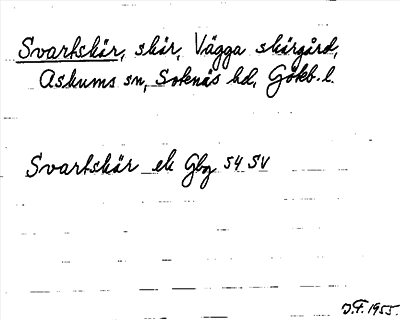 Svartskär, skär, Vägga skärgård,
Askums sn, Sotenäs hd, Göteb. l.
Svartskär ek Gbg 54 SV
J.F. 1955.